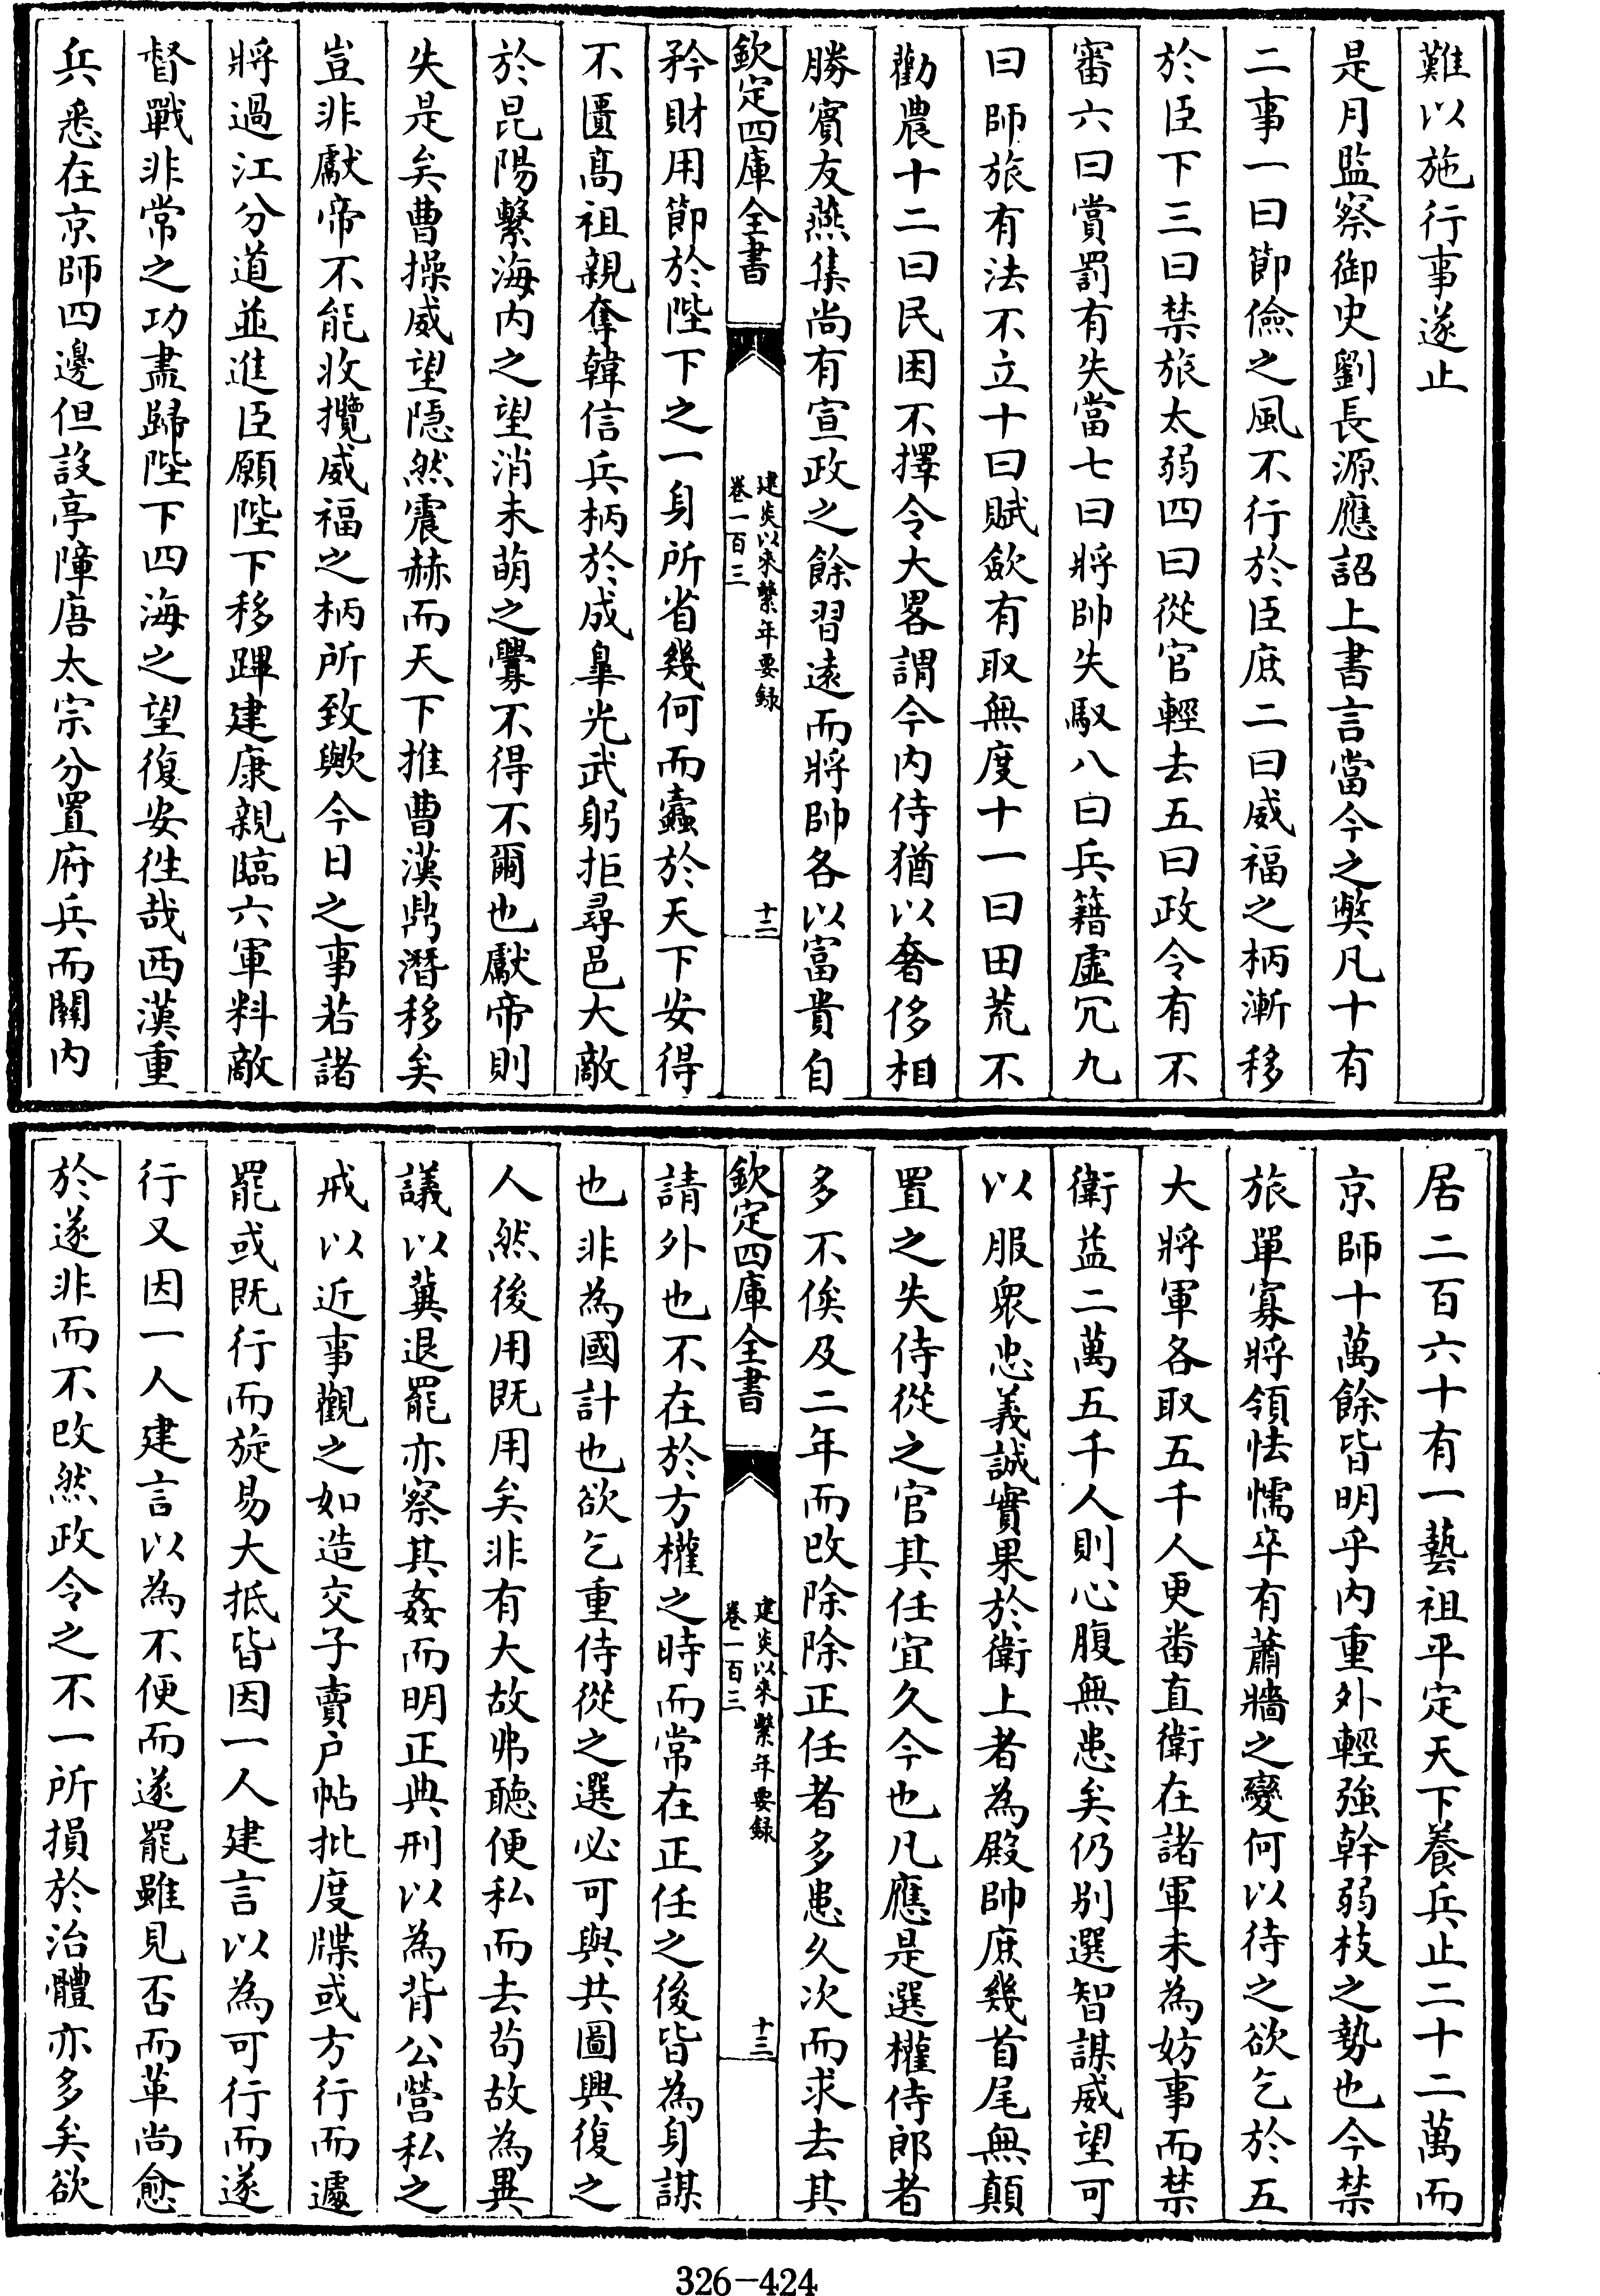 難以施行事遂止
是月監察御史劉長源應詔上書言當今之弊凡十有
二事一曰節儉之風不行於臣庶二曰威福之柄漸移
於臣下三曰禁旅太弱四曰從官輕去五曰政令有不
審六曰賞罰有失當七曰將帥失馭八曰兵籍虛冗九
曰師旅有法不立十曰賦斂有取無度十一曰田荒不
勸農十二曰民困不擇令大畧謂今内侍猶以奢侈相
勝賓友燕集尚有宣政之餘習逺而將帥各以富貴自
欽定四庫全書
建炎以來繫年要録
卷一百三
十二
矜財用節於陛下之一身所省幾何而蠧於天下安得
不匱髙祖親奪韓信兵柄於成臯光武躬拒尋邑大敵
於昆陽繫海内之望消未萌之釁不得不爾也獻帝則
失是矣曹操威望隠然震赫而天下推曹漢鼎潛移矣
豈非獻帝不能收攬威福之柄所致歟今日之事若諸
將過江分道並進臣願陛下移蹕建康親臨六軍料敵
督戰非常之功盡歸陛下四海之望復安徃哉西漢重
兵悉在京師四邊但設亭障唐太宗分置府兵而關内
居二百六十有一藝祖平定天下養兵止二十二萬而
京師十萬餘皆明乎内重外輕強幹弱枝之勢也今禁
旅單寡將領怯懦卒有蕭牆之變何以待之欲乞於五
大將軍各取五千人更番直衛在諸軍未為妨事而禁
衛益二萬五千人則心腹無患矣仍别選智謀威望可
以服衆忠義誠實果於衛上者為殿帥庶幾首尾無顛
置之失侍從之官其任宜久今也凡應是選權侍郎者
多不俟及二年而改除除正任者多患久次而求去其
欽定四庫全書
建炎以來繫年要録
卷一百三
十三
請外也不在於方權之時而常在正任之後皆為身謀
也非為國計也欲乞重侍從之選必可與共圖興復之
人然後用既用矣非有大故弗聽便私而去苟故為異
議以冀退罷亦察其姦而明正典刑以為背公營私之
戒以近事觀之如造交子賣户帖批度牒或方行而遽
罷或既行而旋易大抵皆因一人建言以為可行而遂
行又因一人建言以為不便而遂罷雖見否而革尚愈
於遂非而不改然政令之不一所損於治體亦多矣欲
326-424